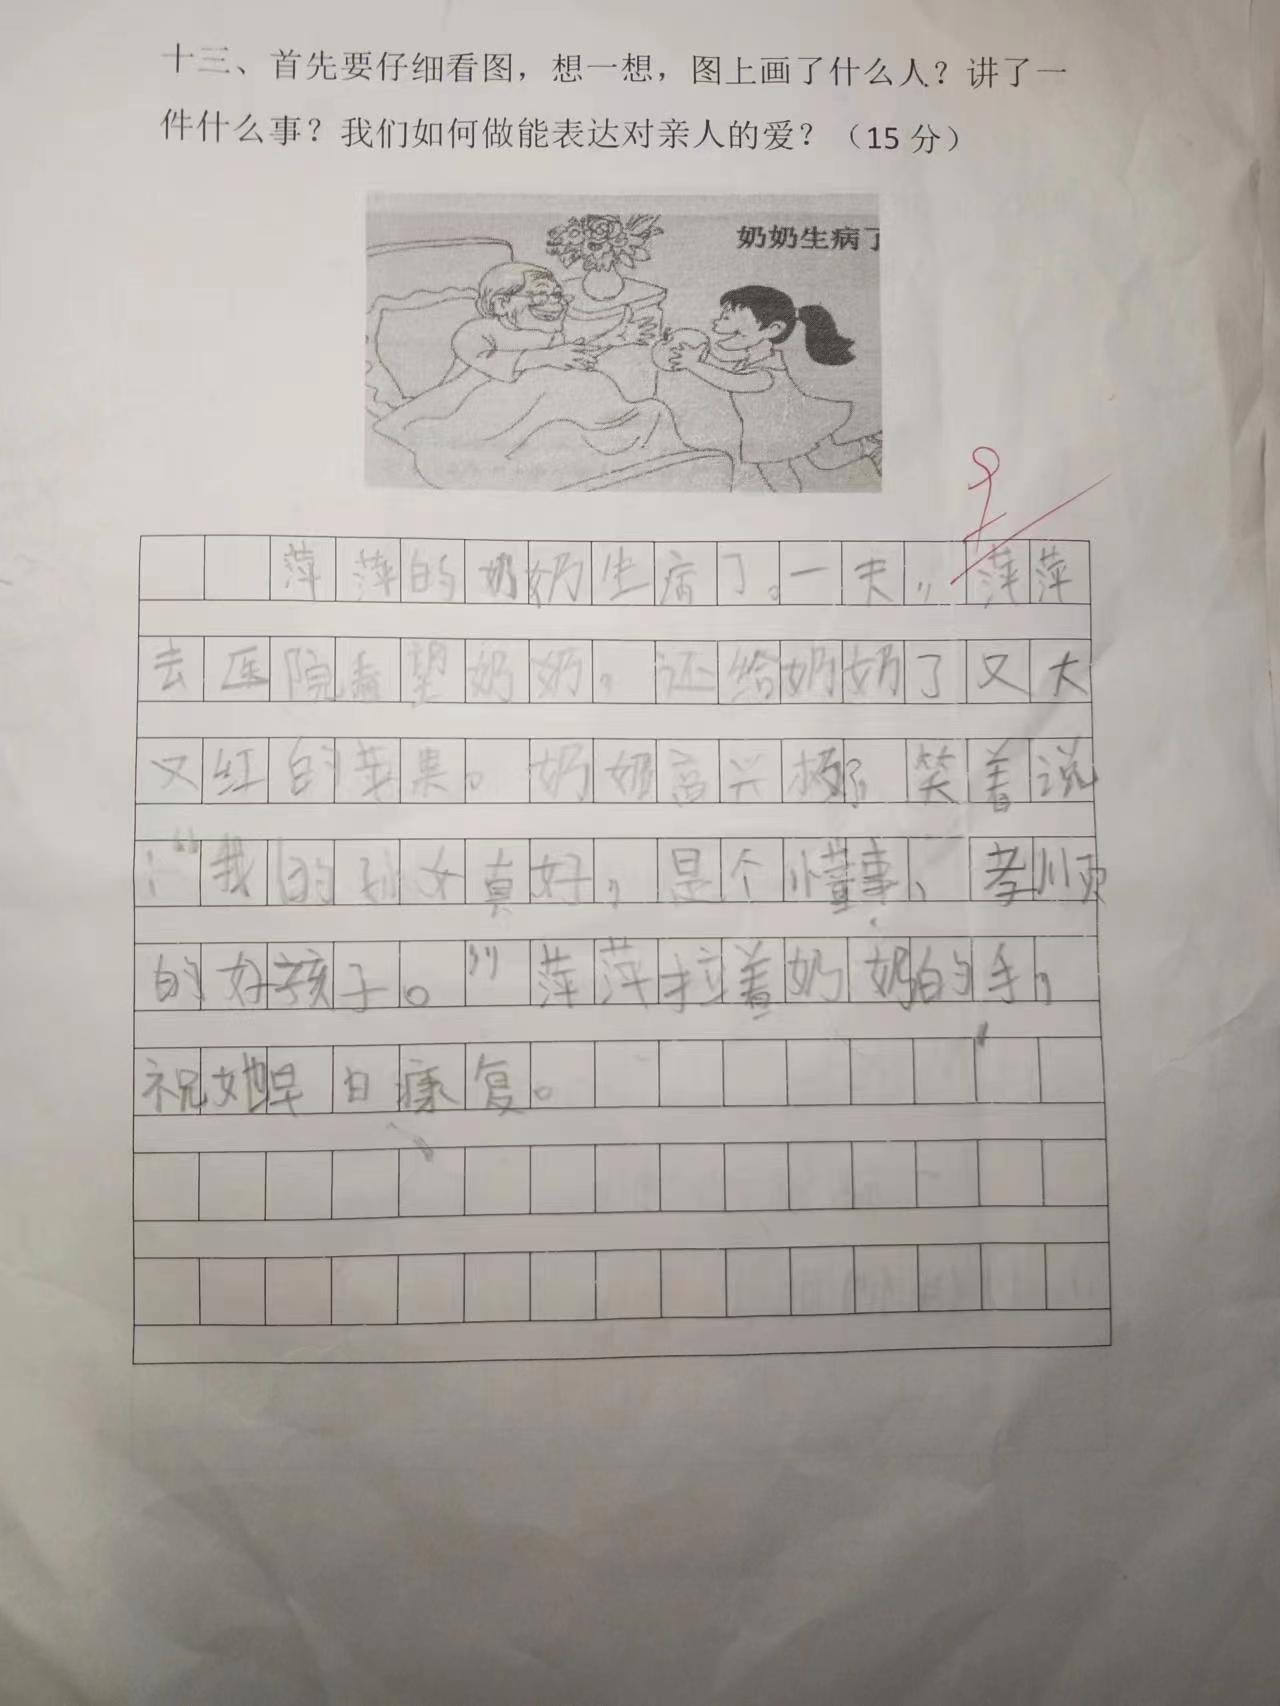 十三、首先要仔细看图，想一想，图上画了什么人？讲了一
件什么事？我们如何做能表达对亲人的爱？（15 分）
奶奶生病了
萍萍的奶奶生病了。一天，萍萍
去医院看望奶奶，还给奶奶了又大
又红的苹果。奶奶高兴极了，笑着说
：“我的孙女真好，是个懂事、孝顺
的好孩子。”萍萍拉着奶奶的手，
祝她早日康复。